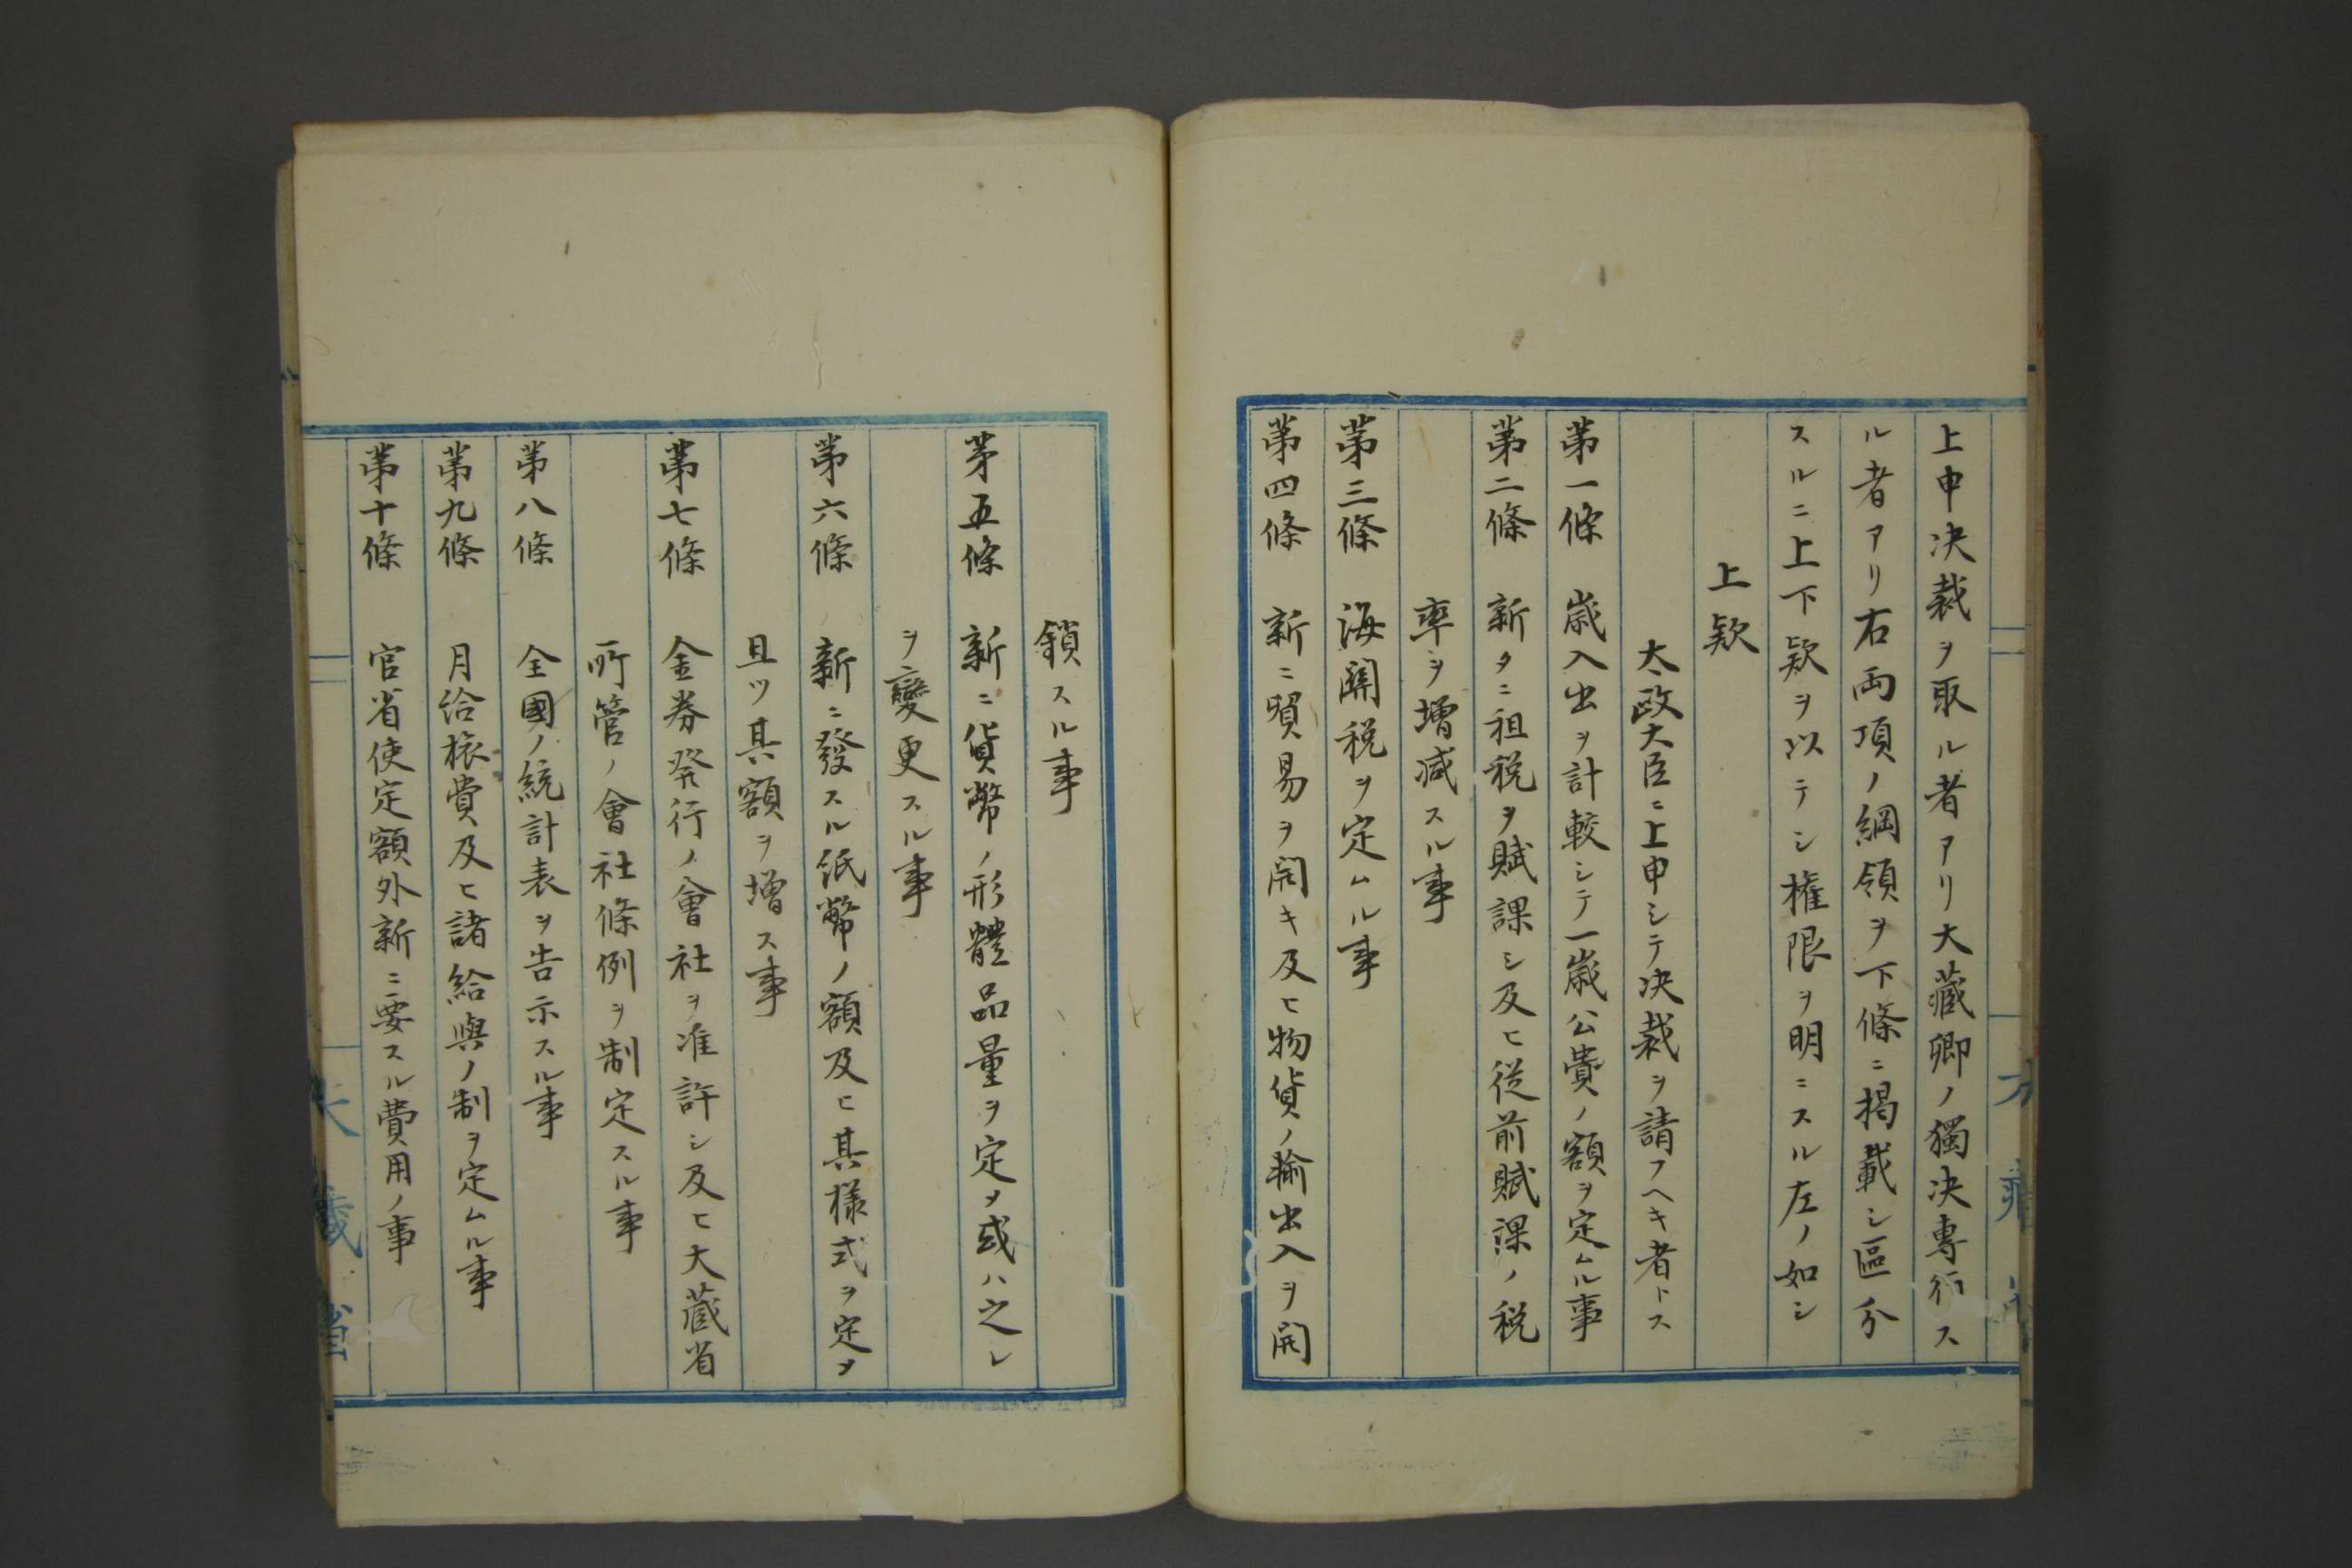 上申决裁ヲ取ル者アリ大藏卿ノ獨决專行ス
ル者アリ右両項ノ綱領ヲ下條ニ掲載シ區分
スルニ上下欵ヲ以テシ権限ヲ明ニスル左ノ如シ
上欵
太政大臣ニ上申シテ决裁ヲ請フヘキ者トス
第一條 歳入出ヲ計較シテ一歳公費ノ額ヲ定ムル事
第二條 新タニ租税ヲ賦課シ及ヒ従前賦課ノ税
率ヲ増減スル事
第三條 海關税ヲ定ムル事
第四條 新ニ貿易ヲ開キ及ヒ物貨ノ輸出入ヲ開
鎖スル事
第五條 新ニ貨幣ノ形體品量ヲ定メ或ハ之レ
ヲ變更スル事
第六條 新ニ發スル紙幣ノ額及ヒ其様式ヲ定メ
且ツ其額ヲ増ス事
第七條 金券発行ノ會社ヲ准許シ及ヒ大藏省
所管ノ會社條例ヲ制定スル事
第八條 全國ノ統計表ヲ告示スル事
第九條 月給旅費及ヒ諸給與ノ制ヲ定ムル事
第十條 官省使定額外新ニ要スル費用ノ事
大藏省